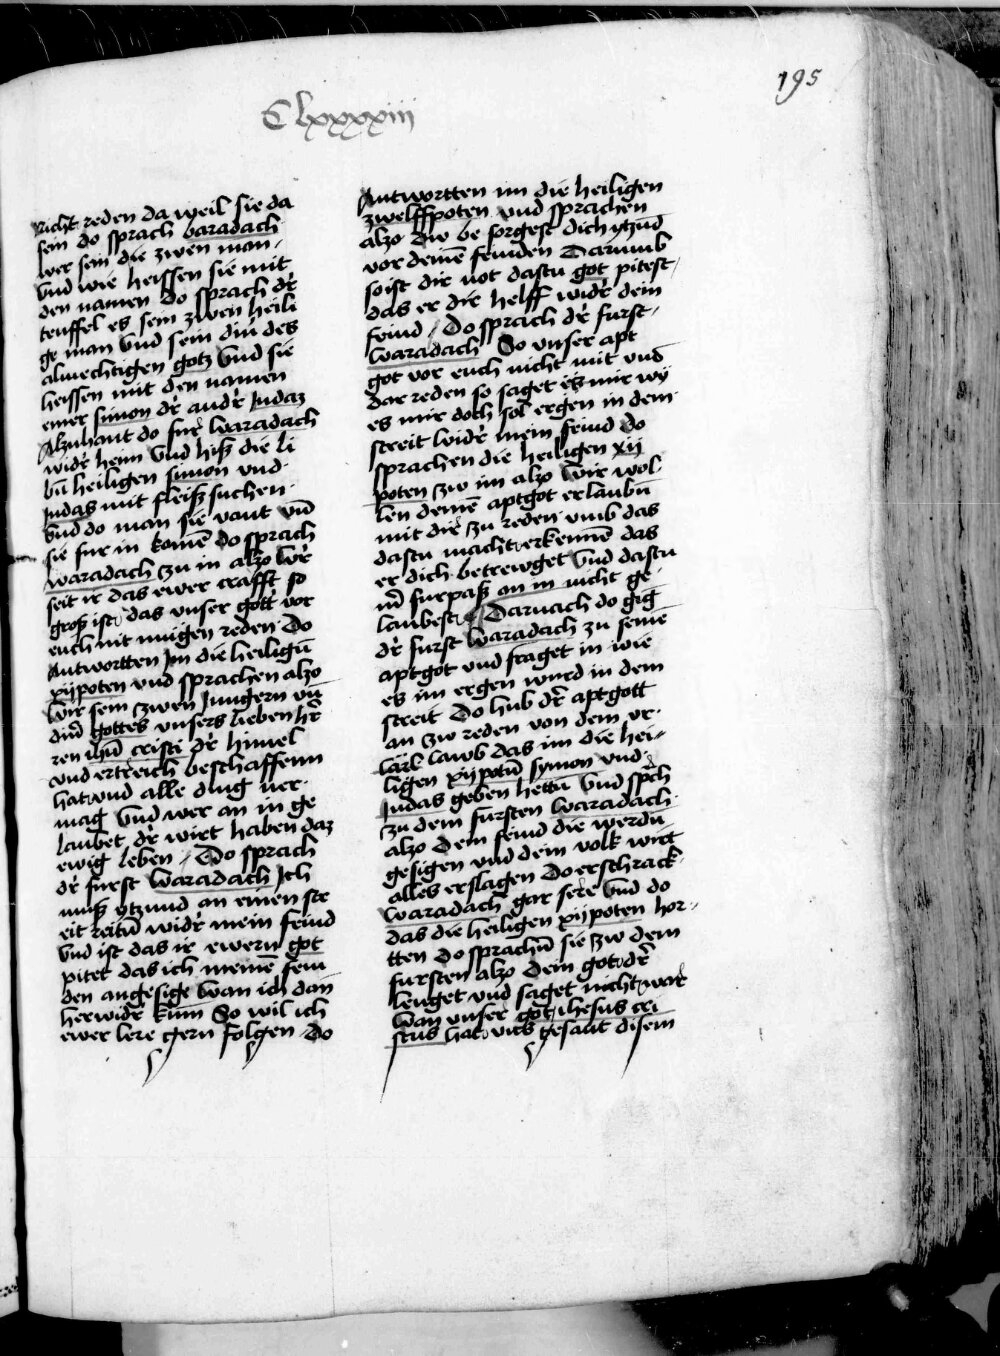 195
Clxxxxiii
nicht reden da weil sie da
sein do sprach baradach
wer sein die zwen man
vnd wie heissen sie mit
den namen do sprach dr̄
teuffel es sein zwen heili
ge man vnd sein din̄ des
almechtigen gotz vnd sie
heissen mit den namen
einer simon dr̄ andr̄ Judaz
Alzuhant do fur̄ waradach
widr̄ heim vnd hiſz die li
bn̄ heiligen simon vnd
Judas mit fleiſz suchen
vnd do man sie vant vn̄
sie fur in komē do sprach
waradach zu in alzo wr̄
seit ir das ewer crafft so
groſz ist das vnser gott vor
euch nit mugen reden Do
Antwortten Im die heilign̄
xijpoten vnd sprachen alzo
wir sein zwen Jungern vn̄
din̄ gottes vnsers lieben hr̄
ren ihū cristi dr̄ himel
vnd ertreich beschaffenn
hat vnd alle ding ver
mag vnd wer an in ge
laubet dr̄ wirt haben daz
ewig leben Do sprach
dr̄ furst waradach Ich
muſz ytzund an einen str
eit reitn̄ widr̄ mein feind
vnd ist das ir ewern got
pitet das ich meinē fein
den angesige wan ich dan
herwidr̄ kum So wil ich
ewer lere gern folgen Do
Antwortten im die heiligen
zwelffpoten vnd sprachen
alzo diw be sorgest dich ytzūd
vor deinē feinden Darumb
so ist dir not dastu got pitest
das er dir helff widr̄ dein
feind Do sprach dr̄ furst
waradach So vnser apt
got vor euch nicht mit vnd
dar reden so saget eſz mir wy
es mir doch sol ergen in dem
streit widr̄ mein feind do
sprachen die heiligen xij
poten zw im alzo wir wol
len deinē aptgot erlaubn̄
mit dir zu reden vmb das
dastu macht erkennē das
er dich betrewget vnd dastu
in̄ furpaſz an in nicht ge
laubest Darnach do gīg
dr̄ furst waradach zu seinē
aptgot vnd fraget in wie
eſz im ergen wurd in dem
streit Do hub dr̄ aptgott
an zw reden von dem vr
laub das im die hei
ligen xijpotn̄ symon vnd
Judas geben hettn̄ vnd spch
zu dem fursten waradach
alzo Dem feind die werdn̄
gesigen vnd dein volk wirt
alles erslagen Do erschrack
waradach gar sere vnd do
das die heiligen xijpoten hor
tten Do sprachn̄ sie zw dem
fursten alzo dein got dr̄
leuget vnd saget nicht war
wan vnser got ihesus cri
stus hat vns gesant disem